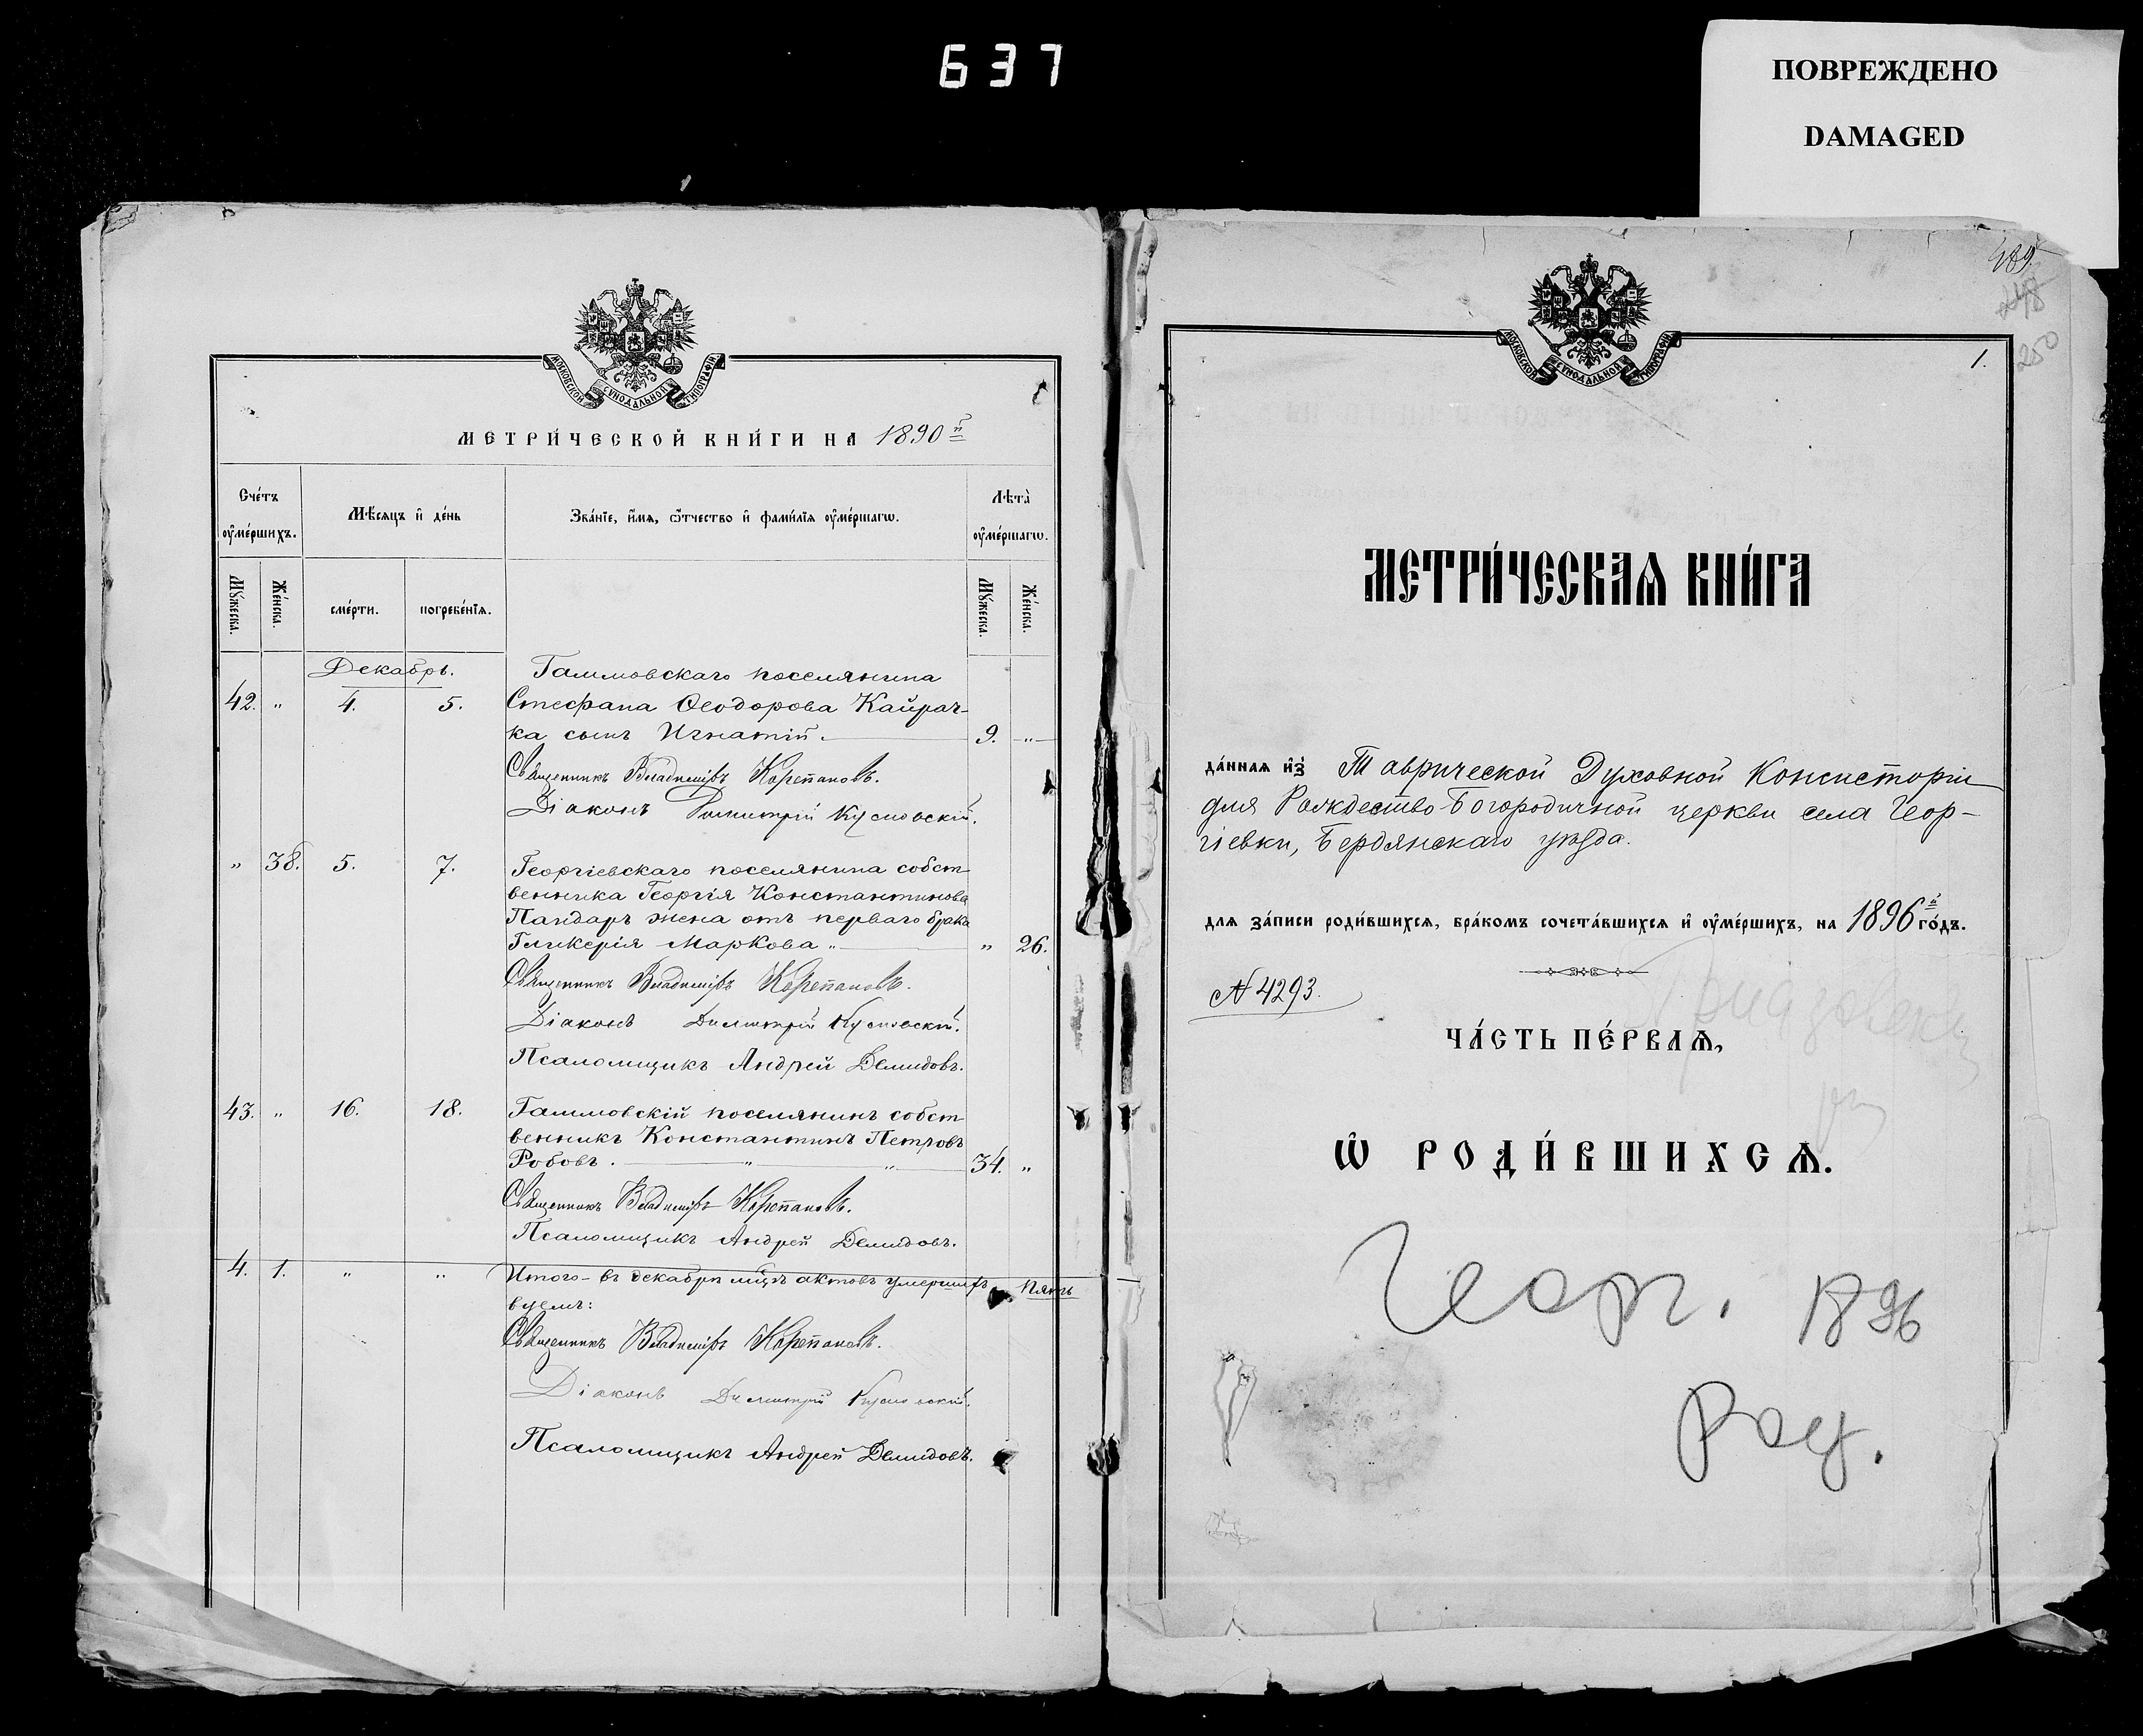 637
ПОВРЕЖДЕНО
DAMAGED
МОСКОВСКОЙ СѴНОДАЛЬНОЙ ТИПОГРАФІИ
МЕТРИ́ЧЕСКОЙ КНИ́ГИ НА 1890й
Сче́тъ ᲂу҆ме́ршихъ.
Мѣ́сяцъ и҆ де́нь
Зва́нїе, и҆́мѧ, ѿ́чество и҆ фами́лїѧ ᲂу҆ме́ршагѡ.
Лѣ́та ᲂу҆ме́ршагѡ.
Мꙋ́жеска.
Же́нска.
сме́рти.
погребе́нїѧ.
Мꙋ́жеска.
Же́нска.
Декабрь.
Гаммовскаго поселянина
42. " 4. 5. Стефана Ѳеодорова Кайрач-
ка сынъ Игнатій. 9. "
Священникъ Владиміръ Карепановъ.
Діаконъ Димитрій
" 38. 5. 7. Георгіевскаго поселянина собст
венника Георгія Константинова
Пандаръ жена отъ перваго брака
Гликерія Маркова " " 26.
Священникъ Владиміръ Карепановъ.
Діаконъ Димитрій
Псаломщикъ Андрей Демидовъ.
43. " 16. 18. Гаммовскій поселянинъ собст
венникъ Константинъ Петровъ
Робовъ. " " 34. "
Священникъ Владиміръ Карепановъ.
Псаломщикъ Андрей Демидовъ.
4. 1. " " Итого - въ декабрѣ мцѣ актовъ умершихъ пять
всѣмъ:
Священникъ Владиміръ Карепановъ.
Діаконъ Димитрій
Псаломщикъ Андрей Демидовъ.
489.
248
250
МОСКОВСКОЙ СѴНОДАЛЬНОЙ ТИПОГРАФІИ
1.
МЕТРИ́ЧЕСКАѦ КНИ́ГА
да́ннаѧ и҆з̾ Таврической Духовной Консисторіи
для Рождество-Богородичной церкви села Геор-
гіевки, Бердянскаго уѣзда.
для за́писи роди́вшихсѧ, бра́комъ сочета́вшихсѧ и҆ ᲂу҆ме́ршихъ, на 1896й го́дъ.
№ 4293.
ЧА́СТЬ ПЕ́РВАѦ,
Ѡ҆ РОДИ́ВШИХСѦ.
Геор. 1896
Рож.